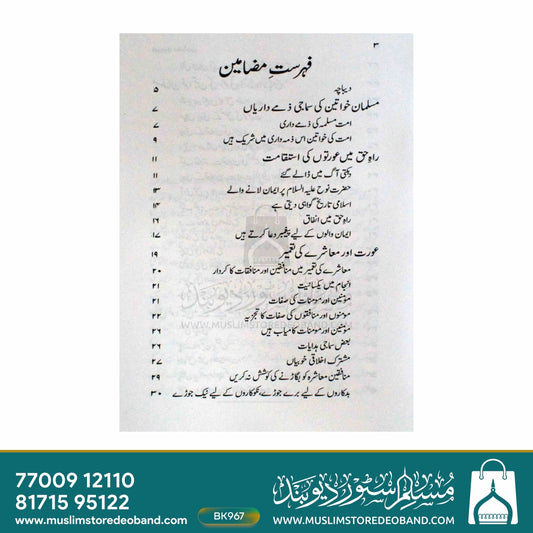 ۳
فہرستِ مضامین
دیباچہ ۵
مسلمان خواتین کی سماجی ذمے داریاں ۷
امت مسلمہ کی ذمے داری ۷
امت کی خواتین اس ذمہ داری میں شریک ہیں ۹
راہِ حق میں عورتوں کی استقامت ۱۱
دہکتی آگ میں ڈالے گئے ۱۱
حضرت نوح علیہ السلام پر ایمان لانے والے ۱۳
اسلامی تاریخ گواہی دیتی ہے ۱۴
راہِ حق میں انفاق ۱۶
ایمان والوں کے لیے پیغمبر دعا کرتے ہیں ۱۷
عورت اور معاشرے کی تعمیر ۱۹
معاشرے کی تعمیر میں منافقین اور منافقات کا کردار ۲۰
انجام میں یکسانیت ۲۱
مؤمنین اور مومنات کی صفات ۲۱
مومنوں اور منافقوں کی صفات کا تجزیہ ۲۲
مؤمنین اور مومنات کامیاب ہیں ۲۶
بعض سماجی ہدایات ۲۶
مشترک اخلاقی خوبیاں ۲۷
منافقین معاشرہ کو بگاڑنے کی کوشش نہ کریں ۲۹
بدکاروں کے لیے برے جوڑے، نکوکاروں کے لیے نیک جوڑے ۳۰
مسلم سٹور دیوبند
WWW.MUSLIMSTOREDEOBAND.COM
77009 12110
81715 95122
www.muslimstoredeoband.com
BK967
مسلم سٹور دیوبند
WWW.MUSLIMSTOREDEOBAND.COM